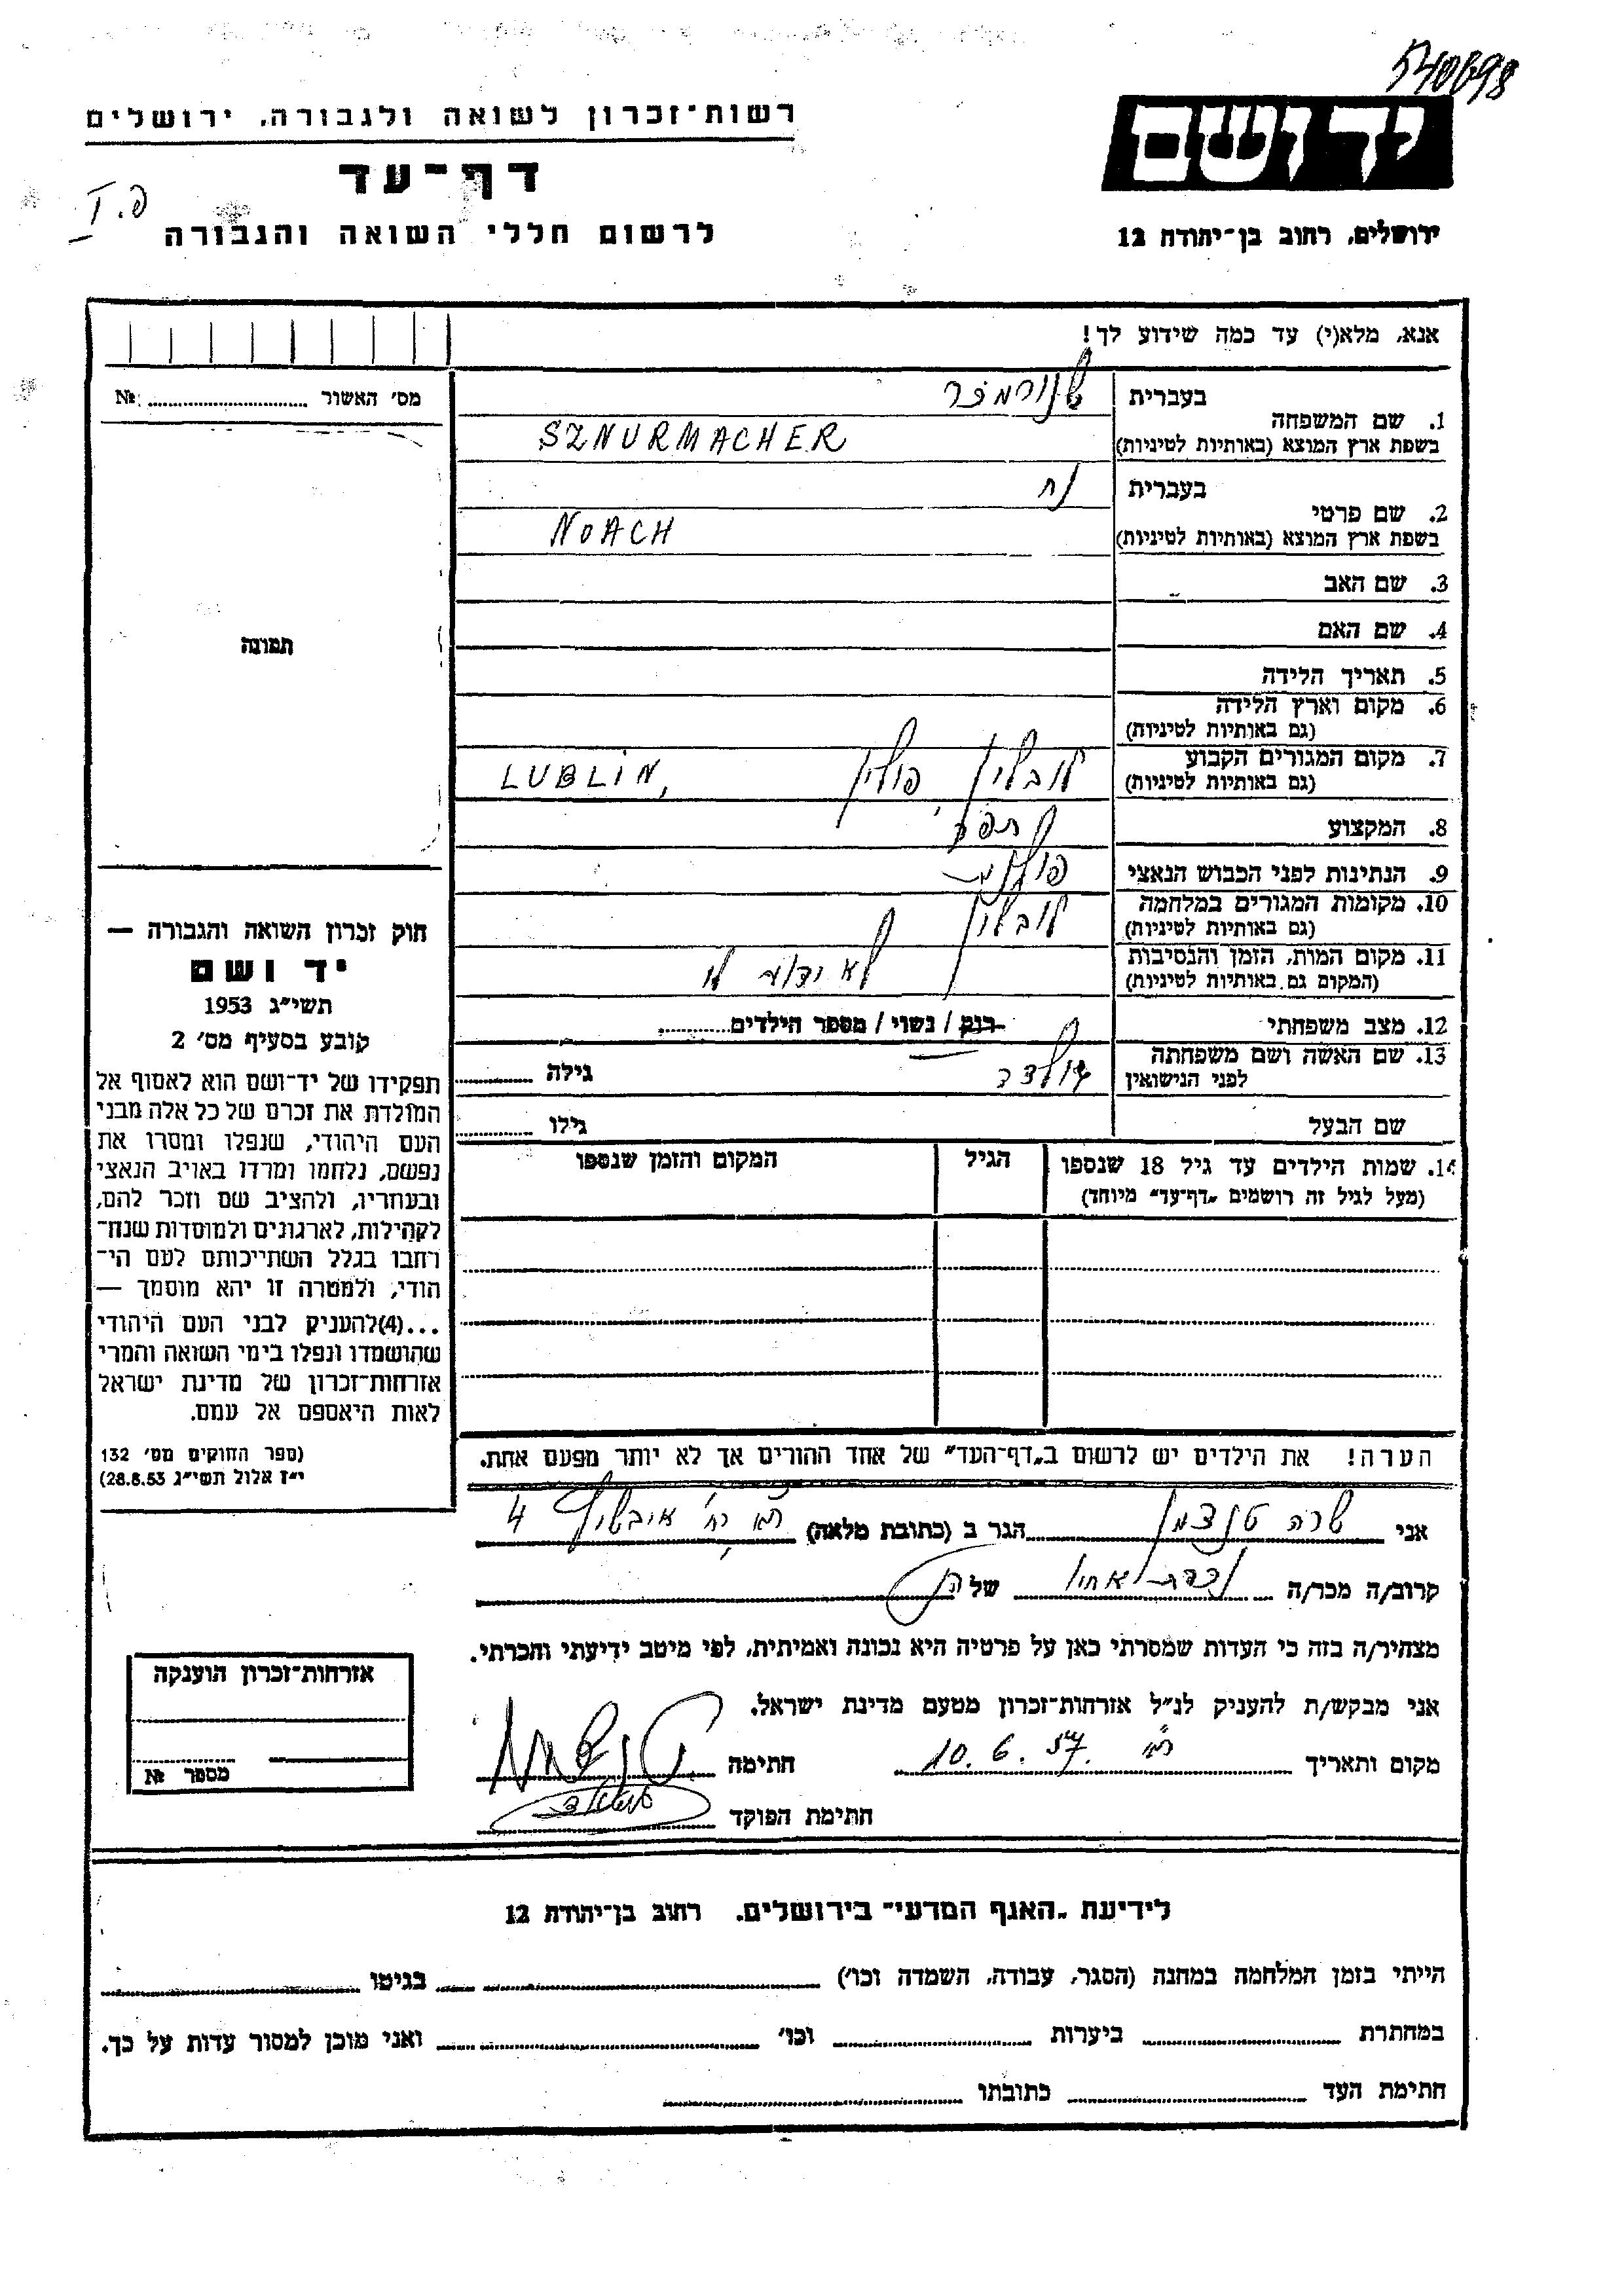 540698
רשות־זכרון לשואה ולגבורה, ירושלים
יד ושם
דף־עד
פ. I
לרשום חללי השואה והגבורה
ירושלים, רחוב בן־יהודה 12
אנא, מלא(י) עד כמה שידוע לך!
מס' האשור № 
בעברית
1. שם המשפחה
בשפת ארץ המוצא (באותיות לטיניות) SZNURMACHER
בעברית נח
2. שם פרטי
בשפת ארץ המוצא (באותיות לטיניות) NOACH
3. שם האב
4. שם האם
תמונה
5. תאריך הלידה
6. מקום וארץ הלידה
(גם באותיות לטיניות)
7. מקום המגורים הקבוע לובלין, פולין LUBLIN,
(גם באותיות לטיניות)
8. המקצוע
9. הנתינות לפני הכבוש הנאצי
10. מקומות המגורים במלחמה לובלין
(גם באותיות לטיניות)
11. מקום המות, הזמן והנסיבות לא ידוע לי
(המקום גם באותיות לטיניות)
12. מצב משפחתי רווק / נשוי / מספר הילדים
13. שם האשה ושם משפחתה גילה
לפני הנישואין
שם הבעל גילו
14. שמות הילדים עד גיל 18 שנספו הגיל המקום והזמן שנספו
(מעל לגיל זה רושמים „דף־עד” מיוחד)
חוק זכרון השואה והגבורה —
יד ושם
תשי״ג 1953
קובע בסעיף מס' 2
תפקידו של יד־ושם הוא לאסוף אל
המולדת את זכרם של כל אלה מבני
העם היהודי, שנפלו ומסרו את
נפשם, נלחמו ומרדו באויב הנאצי
ובעוזריו, ולהציב שם וזכר להם,
לקהילות, לארגונים ולמוסדות שנח־
רבו בגלל השתייכותם לעם הי־
הודי, ולמטרה זו יהא מוסמך —
...(4)להעניק לבני העם היהודי
שהושמדו ונפלו בימי השואה והמרי
אזרחות־זכרון של מדינת ישראל
לאות היאספם אל עמם.
(ספר החוקים מס' 132
י״ז אלול תשי״ג 28.8.53)
הערה! את הילדים יש לרשום ב„דף־העד” של אחד ההורים אך לא יותר מפעם אחת.
אני שרה הגר ב (כתובת מלאה) 4
קרוב/ה מכר/ה של
מצהיר/ה בזה כי העדות שמסרתי כאן על פרטיה היא נכונה ואמיתית, לפי מיטב ידיעתי והכרתי.
אני מבקש/ת להעניק לנ״ל אזרחות־זכרון מטעם מדינת ישראל.
מקום ותאריך 10.6.57. חתימה
חתימת הפוקד
אזרחות־זכרון הוענקה
מספר №
לידיעת „האגף המדעי” בירושלים, רחוב בן־יהודה 12
הייתי בזמן המלחמה במחנה (הסגר, עבודה, השמדה וכו') בגיטו
במחתרת ביערות וכו' ואני מוכן למסור עדות על כך.
חתימת העד כתובתו